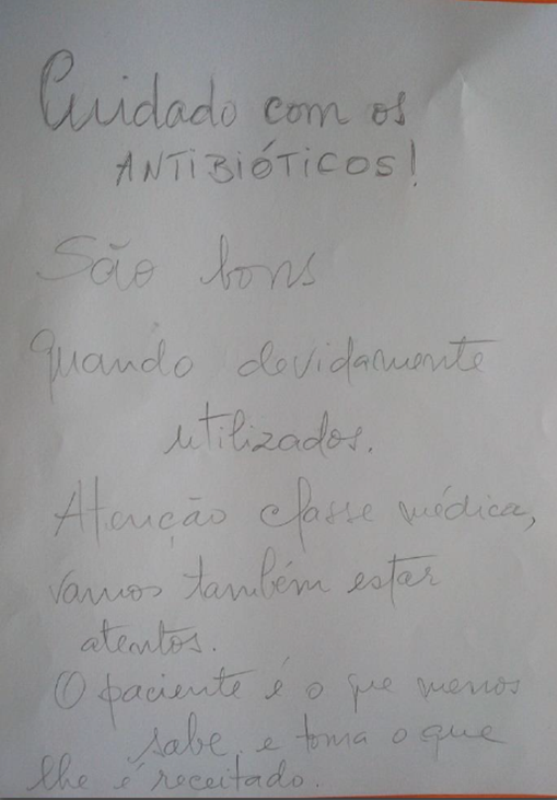 Cuidado com os
ANTIBIÓTICOS!
São bons
quando devidamente
utilizados.
Atenção classe médica,
vamos também estar
atentos.
O paciente é o que menos
sabe, e toma o que
lhe é receitado.